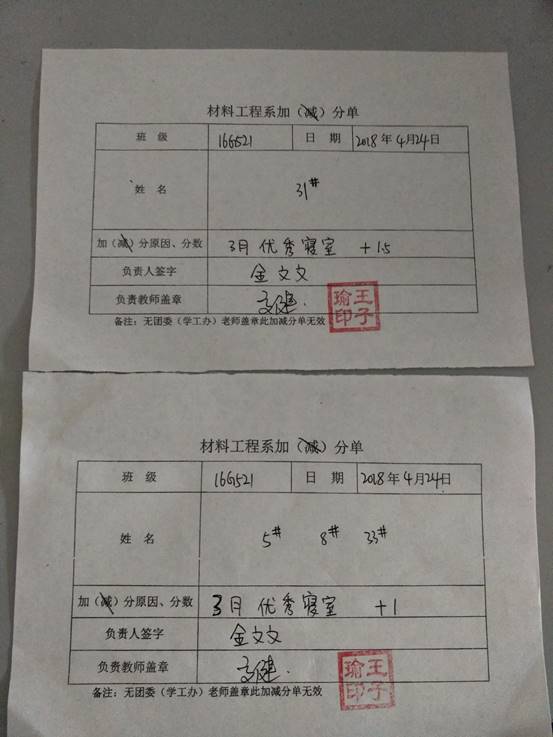 材料工程系加（减）分单
班 级 166521 日 期 2018年4月24日
姓 名 31#
加（减）分原因、分数 3月 优秀寝室 +1.5
负责人签字 金文文
负责教师盖章 高健
王子瑜印
备注：无团委（学工办）老师盖章此加减分单无效
材料工程系加（减）分单
班 级 166521 日 期 2018年4月24日
姓 名 5# 8# 33#
加（减）分原因、分数 3月 优秀寝室 +1
负责人签字 金文文
负责教师盖章 高健
王子瑜印
备注：无团委（学工办）老师盖章此加减分单无效